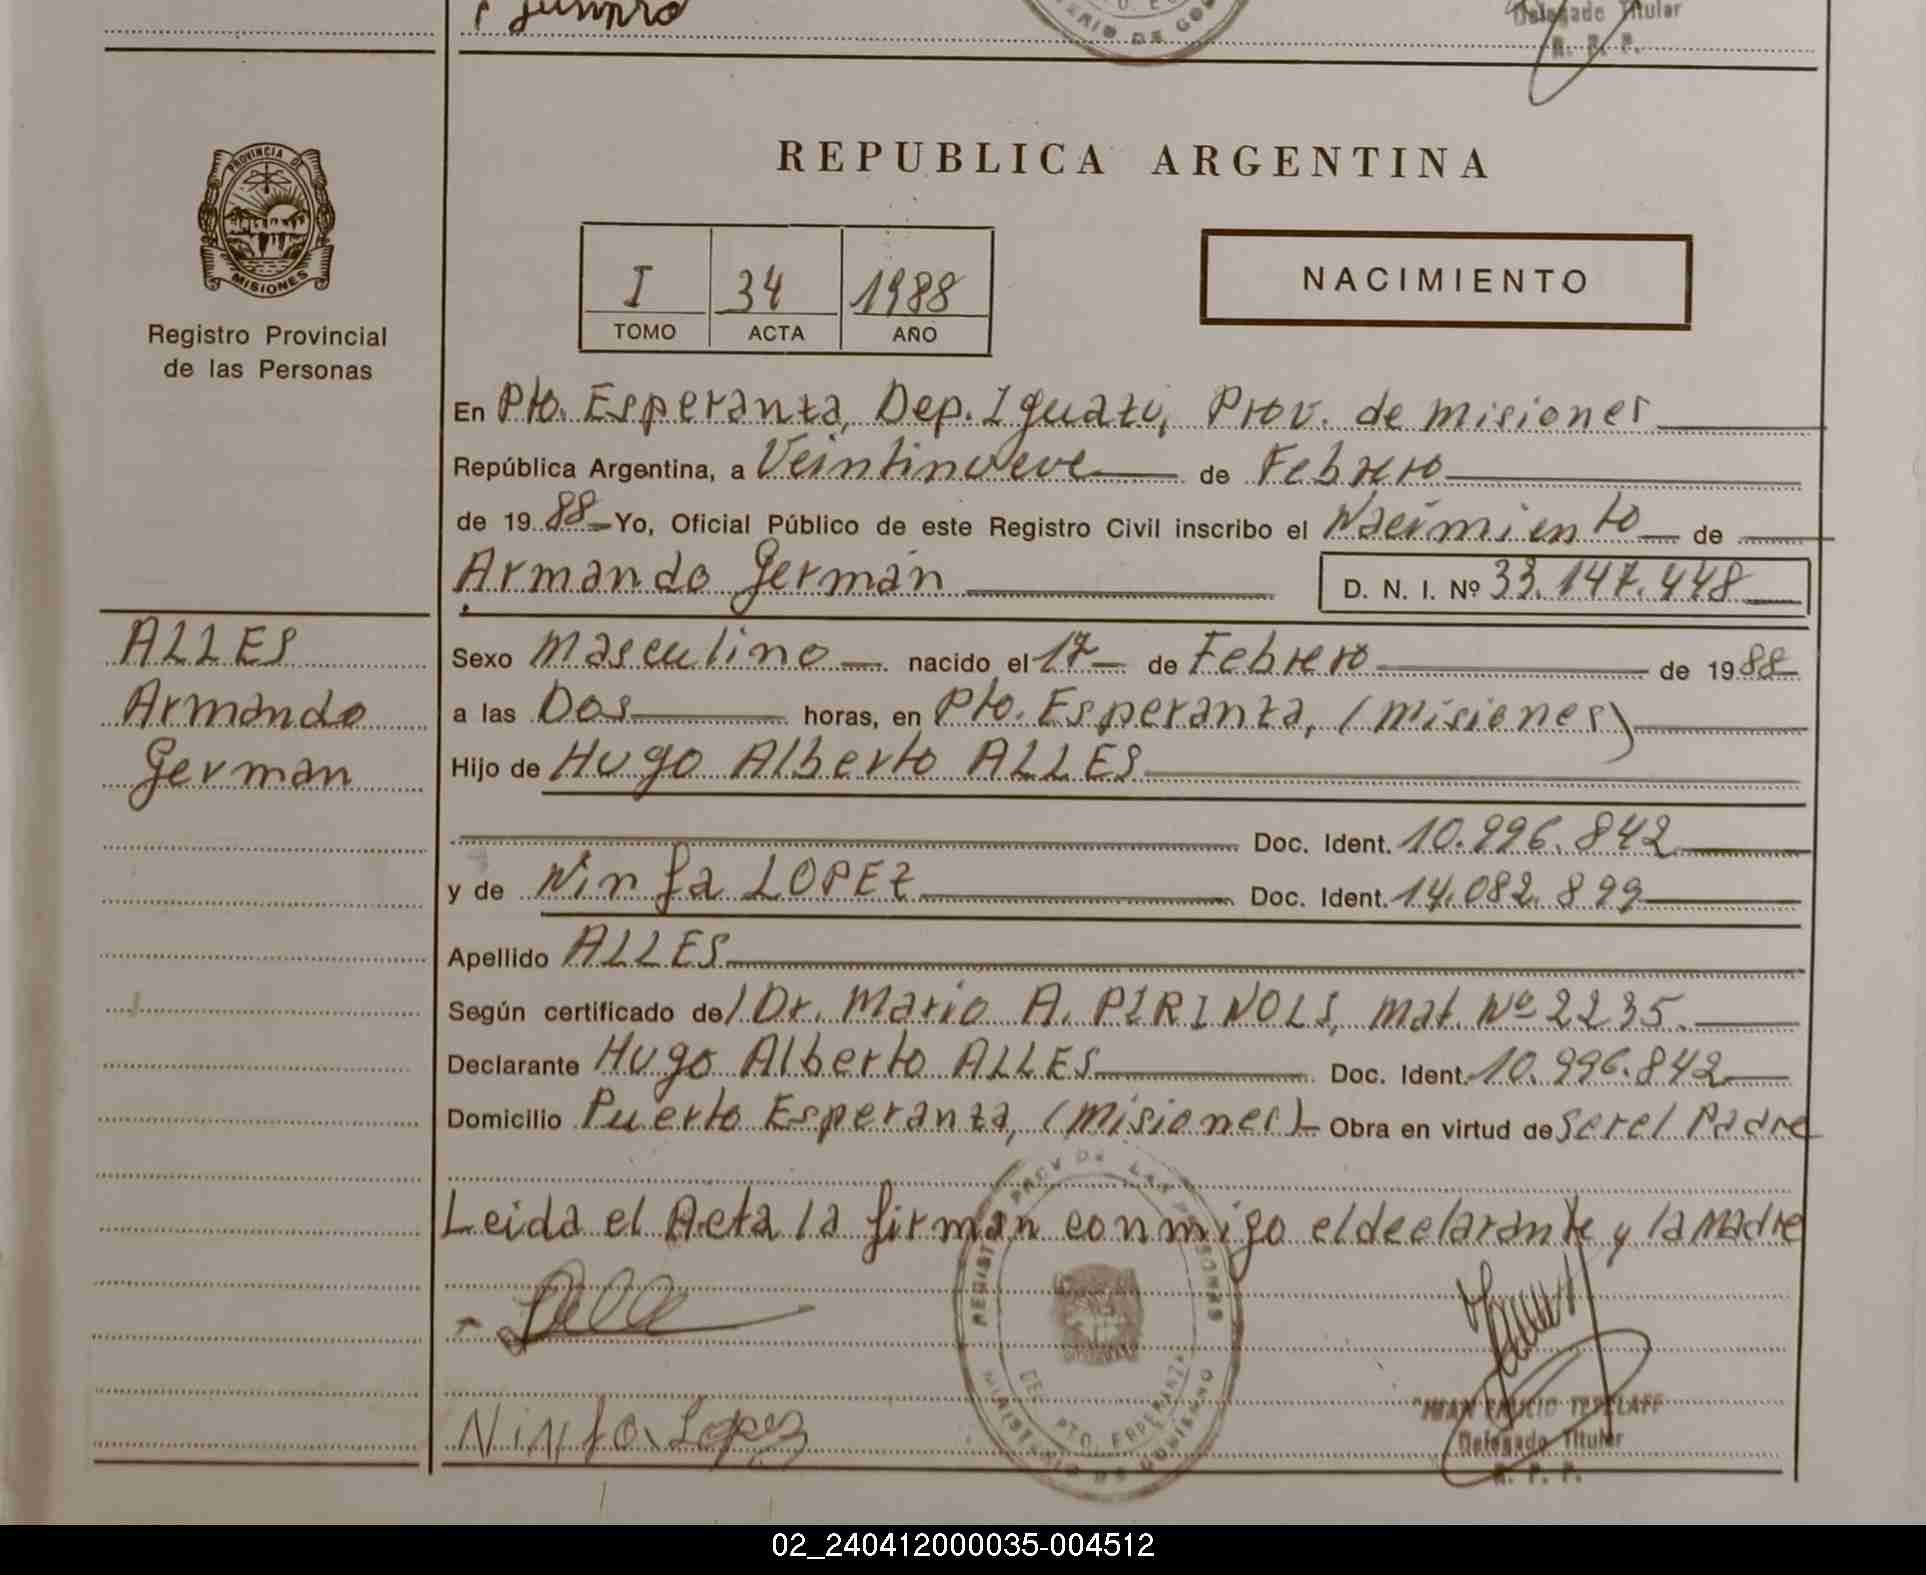 Delegado Titular
R. P. P.
PROVINCIA DE
MISIONES
Registro Provincial
de las Personas
REPUBLICA ARGENTINA
I 34 1988
TOMO ACTA AÑO
NACIMIENTO
En Pto. Esperanza, Dep. Iguazú, Prov. de Misiones
República Argentina, a Veintinueve de Febrero
de 1988 Yo, Oficial Público de este Registro Civil inscribo el Nacimiento de
Armando Germán D. N. I. Nº 33.147.448
ALLES
Armando
German
Sexo Masculino nacido el 17 de Febrero de 1988
a las Dos horas, en Pto. Esperanza, (Misiones)
Hijo de Hugo Alberto ALLES
Doc. Ident. 10.996.842
y de Ninfa LOPEZ Doc. Ident. 14.082.899
Apellido ALLES
Según certificado de/ Dr. Mario A. PIRINOLI, mat. Nº 2235.
Declarante Hugo Alberto ALLES Doc. Ident. 10.996.842
Domicilio Puerto Esperanza, (Misiones) Obra en virtud de ser el Padre
Leida el Acta la firman conmigo el declarante y la Madre
Ninfa Lopez
PTO. ESPERANZA
MINISTERIO DE GOBIERNO
Delegado Titular
R. P. P.
02_240412000035-004512